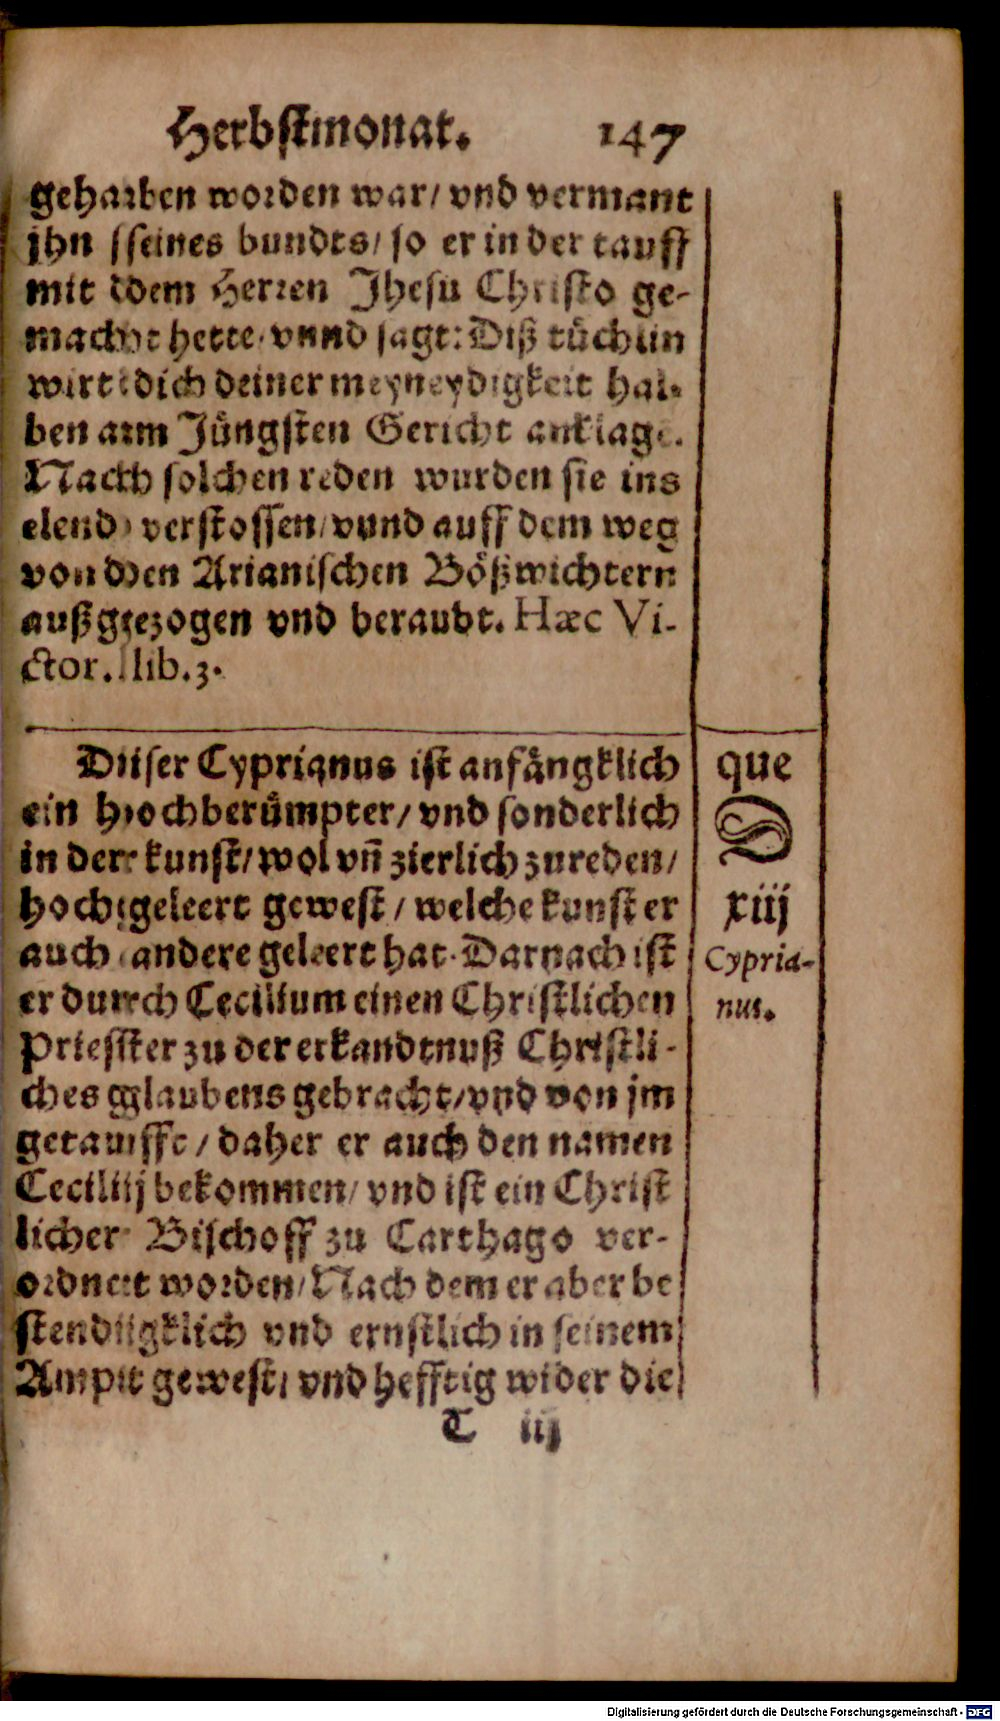 Herbstmonat. 147
geharben worden war/ vnd vermant
jhn seines bundts/ so er in der tauff
mit dem Herren Jhesu Christo ge-
macht hette/ vnnd sagt: Diß tüchlin
wirt dich deiner meyneydigkeit hal-
ben am Jüngsten Gericht anklage.
Nach solchen reden wurden sie ins
elend verstossen/ vnnd auff dem weg
von den Arianischen Bößwichtern
außgezogen vnd beraubt. Hæc Vi-
ctor. lib. 3.
Diser Cyprianus ist anfängklich
ein hochberümpter/ vnd sonderlich
in der kunst/ wol vñ zierlich zureden/
hochgeleert gewest/ welche kunst er
auch andere geleert hat. Darnach ist
er durch Cecilium einen Christlichen
Priester zu der erkandtnuß Christli-
ches glaubens gebracht/ vnd von jm
getaufft/ daher er auch den namen
Cecilij bekommen/ vnd ist ein Christ
licher Bischoff zu Carthago ver-
ordnet worden/ Nach dem er aber be
stendigklich vnd ernstlich in seinem
Ampt gewest/ vnd hefftig wider die
T iij
que
D
xiij
Cypria-
nus.
Digitalisierung gefördert durch die Deutsche Forschungsgemeinschaft - DFG